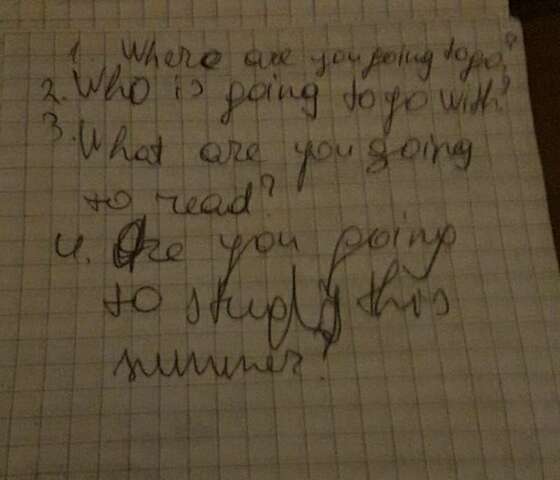 1. Where are you going to go?
2. Who is going to go with?
3. What are you going
to read?
4. Are you going
to study this
summer?